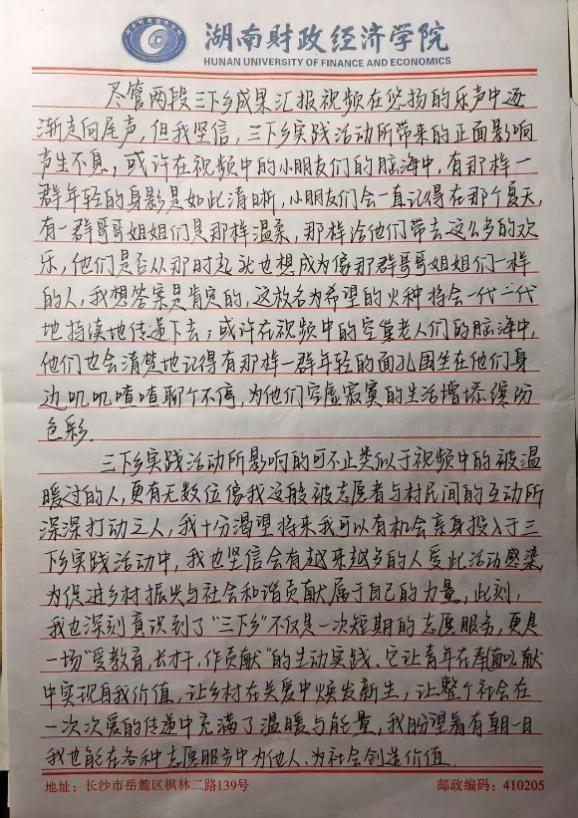 湖南财政经济学院
HUNAN UNIVERSITY OF FINANCE AND ECONOMICS
尽管两段三下乡成果汇报视频在悠扬的乐声中逐
渐走向尾声，但我坚信，三下乡实践活动所带来的正面影响
声生不息，或许在视频中的小朋友们的脑海中，有那样一
群年轻的身影是如此清晰，小朋友们会一直记得在那个夏天，
有一群哥哥姐姐们是那样温柔，那样给他们带去这么多的欢
乐，他们是否从那时起就也想成为像那群哥哥姐姐们一样
的人，我想答案是肯定的，这枚名为希望的火种将会一代一代
地持续地传递下去；或许在视频中的空巢老人们的脑海中，
他们也会清楚地记得有那样一群年轻的面孔围坐在他们身
边叽叽喳喳聊个不停，为他们空虚寂寞的生活增添缤纷
色彩.
三下乡实践活动所影响的可不止类似于视频中的被温
暖过的人，更有无数位像我这般被志愿者与村民间的互动所
深深打动之人，我十分渴望将来我可以有机会亲身投入于三
下乡实践活动中，我也坚信会有越来越多的人受此活动感染，
为促进乡村振兴与社会和谐贡献属于自己的力量，此刻，
我也深刻意识到了“三下乡”不仅是一次短期的志愿服务，更是
一场“受教育，长才干，作贡献”的生动实践、它让青年在奉献
中实现自我价值，让乡村在关爱中焕发新生，让整个社会在
一次次爱的传递中充满了温暖与能量，我盼望着有朝一日
我也能在各种志愿服务中为他人、为社会创造价值.
地址：长沙市岳麓区枫林二路139号 邮政编码：410205